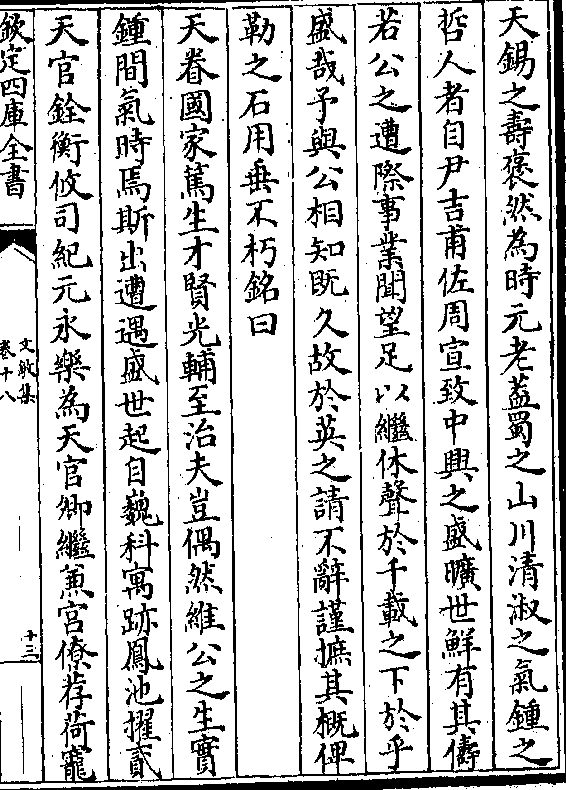 天錫之壽褒然為時元老葢蜀之山川清淑之氣鍾之
哲人者自尹吉甫佐周宣致中興之盛曠世鮮有其儔
若公之遭際事業聞望足以繼休聲於千載之下於乎
盛哉予與公相知既久故於英之請不辭謹摭其概俾
勒之石用垂不朽銘曰
天眷國家篤生才賢光輔至治夫豈偶然維公之生實
鍾間氣時焉斯出遭遇盛世起自巍科寓跡鳳池擢貳
天官銓衡攸司紀元永樂為天官卿繼蒹宫僚荐荷寵
欽定四庫全書
文敏集
卷十八
十三